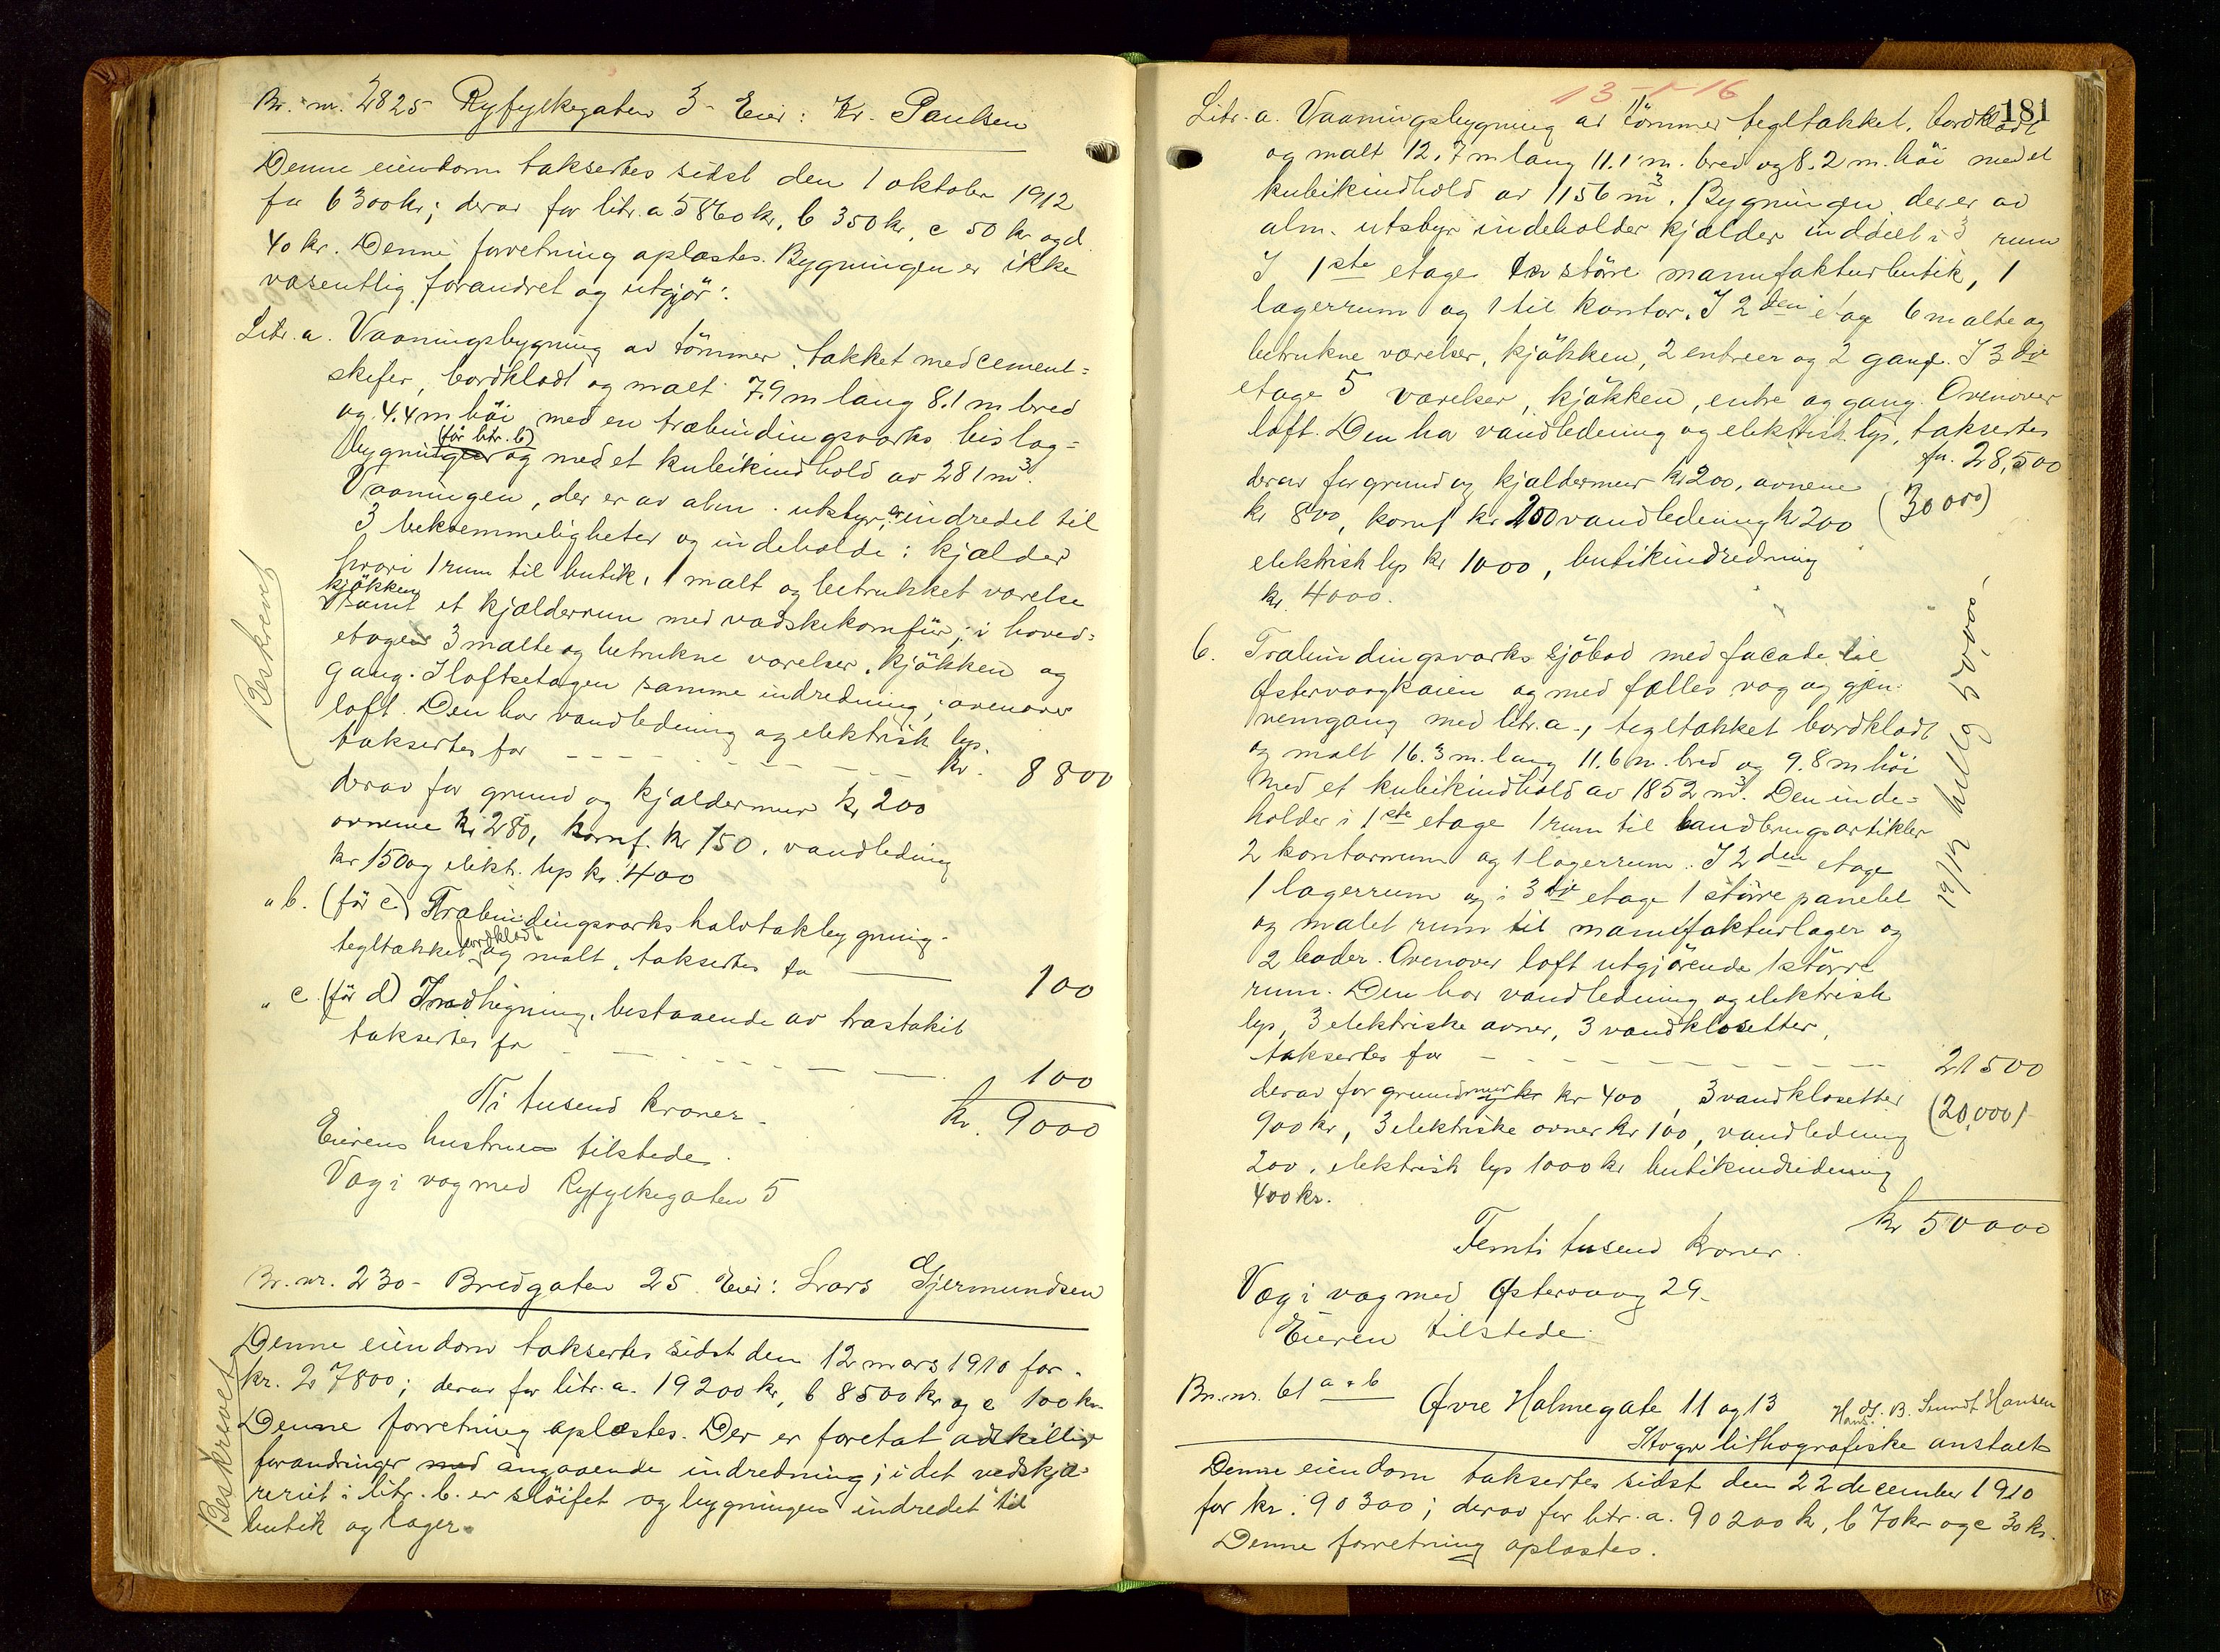 Br. nr. 2825 Ryfylkegaten 3 - Eier: Kr. Paulsen
Denne eiendom taksertes sidst den 1 oktober 1912
for 6300 kr; derav for litr. a 5860 kr, b 350 kr, c 50 kr og d
40 kr. Denne forretning oplæstes. Bygningen er ikke
væsentlig forandret og utgjör:
Litr. a. Vaaningsbygning av tömmer, takket med cement-
skifer, bordklædt og malt 7.9 m lang 8.1 m bred
og 4.4 m höi med en træbindingsverks bislag-
(för litr. b)
bygning og med et kubikindhold av 281 m³.
Vaaningen, der er av alm. utstyr, er indredet til
3 bekvemmeligheter og indeholder: kjælder
hvori 1 rum til butik, 1 malt og betrukket værelse
kjökken
samt et kjælderrum med vadskekomfür; i hoved-
etagen 3 malte og betrukne værelser, kjökken og
gang. I loftsetagen samme indredning, ovenover
loft. Den har vandledning og elektrisk lys.
taksertes for kr. 8800
derav for grund og kjældermur kr 200
ovnene kr 280, komf. kr 150, vandledning
kr 150 og elekt. lys kr. 400
" b. (för c) Træbindingsverks halvtakbygning
bordklædt
tegltækket og malt, taksertes for 100
" c. (för d) Indhegning, bestaaende av træstakit
taksertes for 100
Ni tusend kroner kr. 9000
Eierens hustru tilstede.
Væg i væg med Ryfylkegaten 5
Beskrevet
Br. nr. 230 - Bredgaten 25. Eier: Lars Gjermundsen
Denne eiendom taksertes sidst den 12 mars 1910 for
kr. 27800; derav for litr. a. 19200 kr, b 8500 kr og c 100 kr.
Denne forretning oplæstes. Der er foretat adskillig
forandringer med angaaende indredning; i det vedskjæ-
reriet i litr. b. er slöifet og bygningen indredet til
butik og lager.
Beskrevet
13-1-16
181
Litr. a. Vaaningsbygning av tömmer tegltakket, bordklædt
og malt 12.7 m lang 11.1 m. bred og 8.2 m. höi med et
kubikindhold av 1156 m³. Bygningen, der er av
alm. utstyr indeholder kjælder inddelt i 3 rum
I 1ste etage en större manufakturbutik, 1
lagerrum og 1 til kontor. I 2den etage 6 malte og
betrukne værelser, kjökken, 2 entreer og 2 gange. I 3die
etage 5 værelser, kjökken, entre og gang. Ovenover
loft. Den har vandledning og elektrisk lys, taksertes
for 28,500
derav for grund og kjældermur kr 200, ovnene (30000)
kr 800, komf kr 200 vandledning kr 200
elektrisk lys kr 1000, butikindredning
kr. 4000.
b. Træbindingsverks sjöbod med facade til
Østervaagkaien og med fælles væg og gjen-
nemgang med litr. a., tegltakket bordklædt
og malt 16.3 m. lang 11.6 m. bred og 9.8 m höi
Med et kubikindhold av 1852 m³. Den inde-
holder i 1ste etage 1 rum til landbrugsartikler
2 kontorrum og 1 lagerrum. I 2den etage
1 lagerrum og i 3die etage 1 större panelet
og malet rum til manufakturlager og
2 boder. Ovenover loft utgjörende 1 större
rum. Den har vandledning og elektrisk
lys, 3 elektriske ovner, 3 vandklosetter,
taksertes for 21500
derav for grundmur kr 400, 3 vandklosetter (20,000)
900 kr, 3 elektriske ovner kr 100, vandledning
200, elektrisk lys 1000 kr butikindredning
400 kr.
kr 50000
Femti tusend kroner.
Væg i væg med Østervaag 29.
Eieren tilstede.
Br. nr. 61 a + b Øvre Holmegate 11 og 13 B. Sundt Hansen
lithografiske anstalt
Denne eiendom taksertes sidst den 22 december 1910
for kr. 90300; derav for litr. a. 90200 kr, b 70 kr og c 30 kr.
Denne forretning oplæstes.